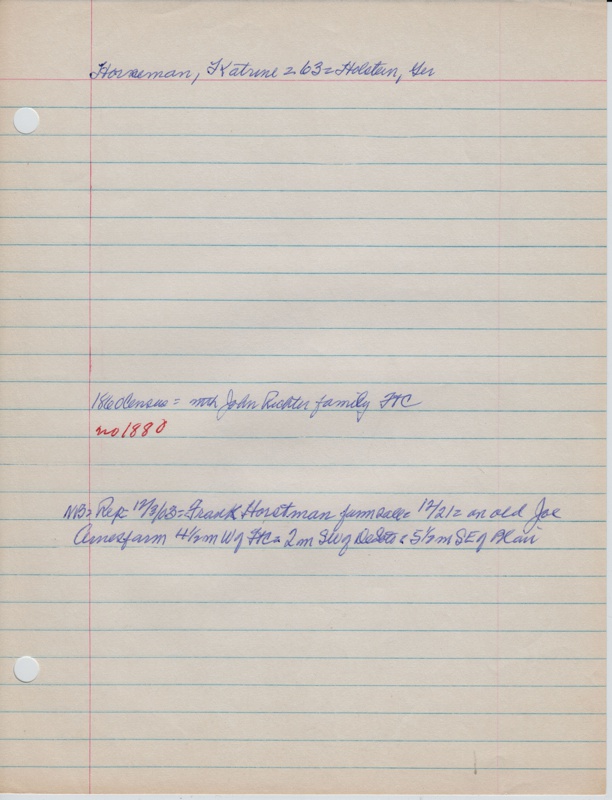 Horneman, Katrine = 63 = Holstein, Ger
1860 Census = with John Richter family FtC
no 1880
NB = Rep = 12/3/03 = Frank Horstman farm sale = 12/21 = on old Joe
Arnesfarm 4 1/2 m W of FtC = 2 m SW of DeSoto = 5 1/2 m SE of Blair